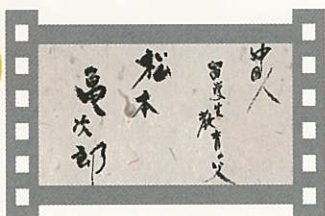 中国人
留学生教育之父
松本
亀次郎